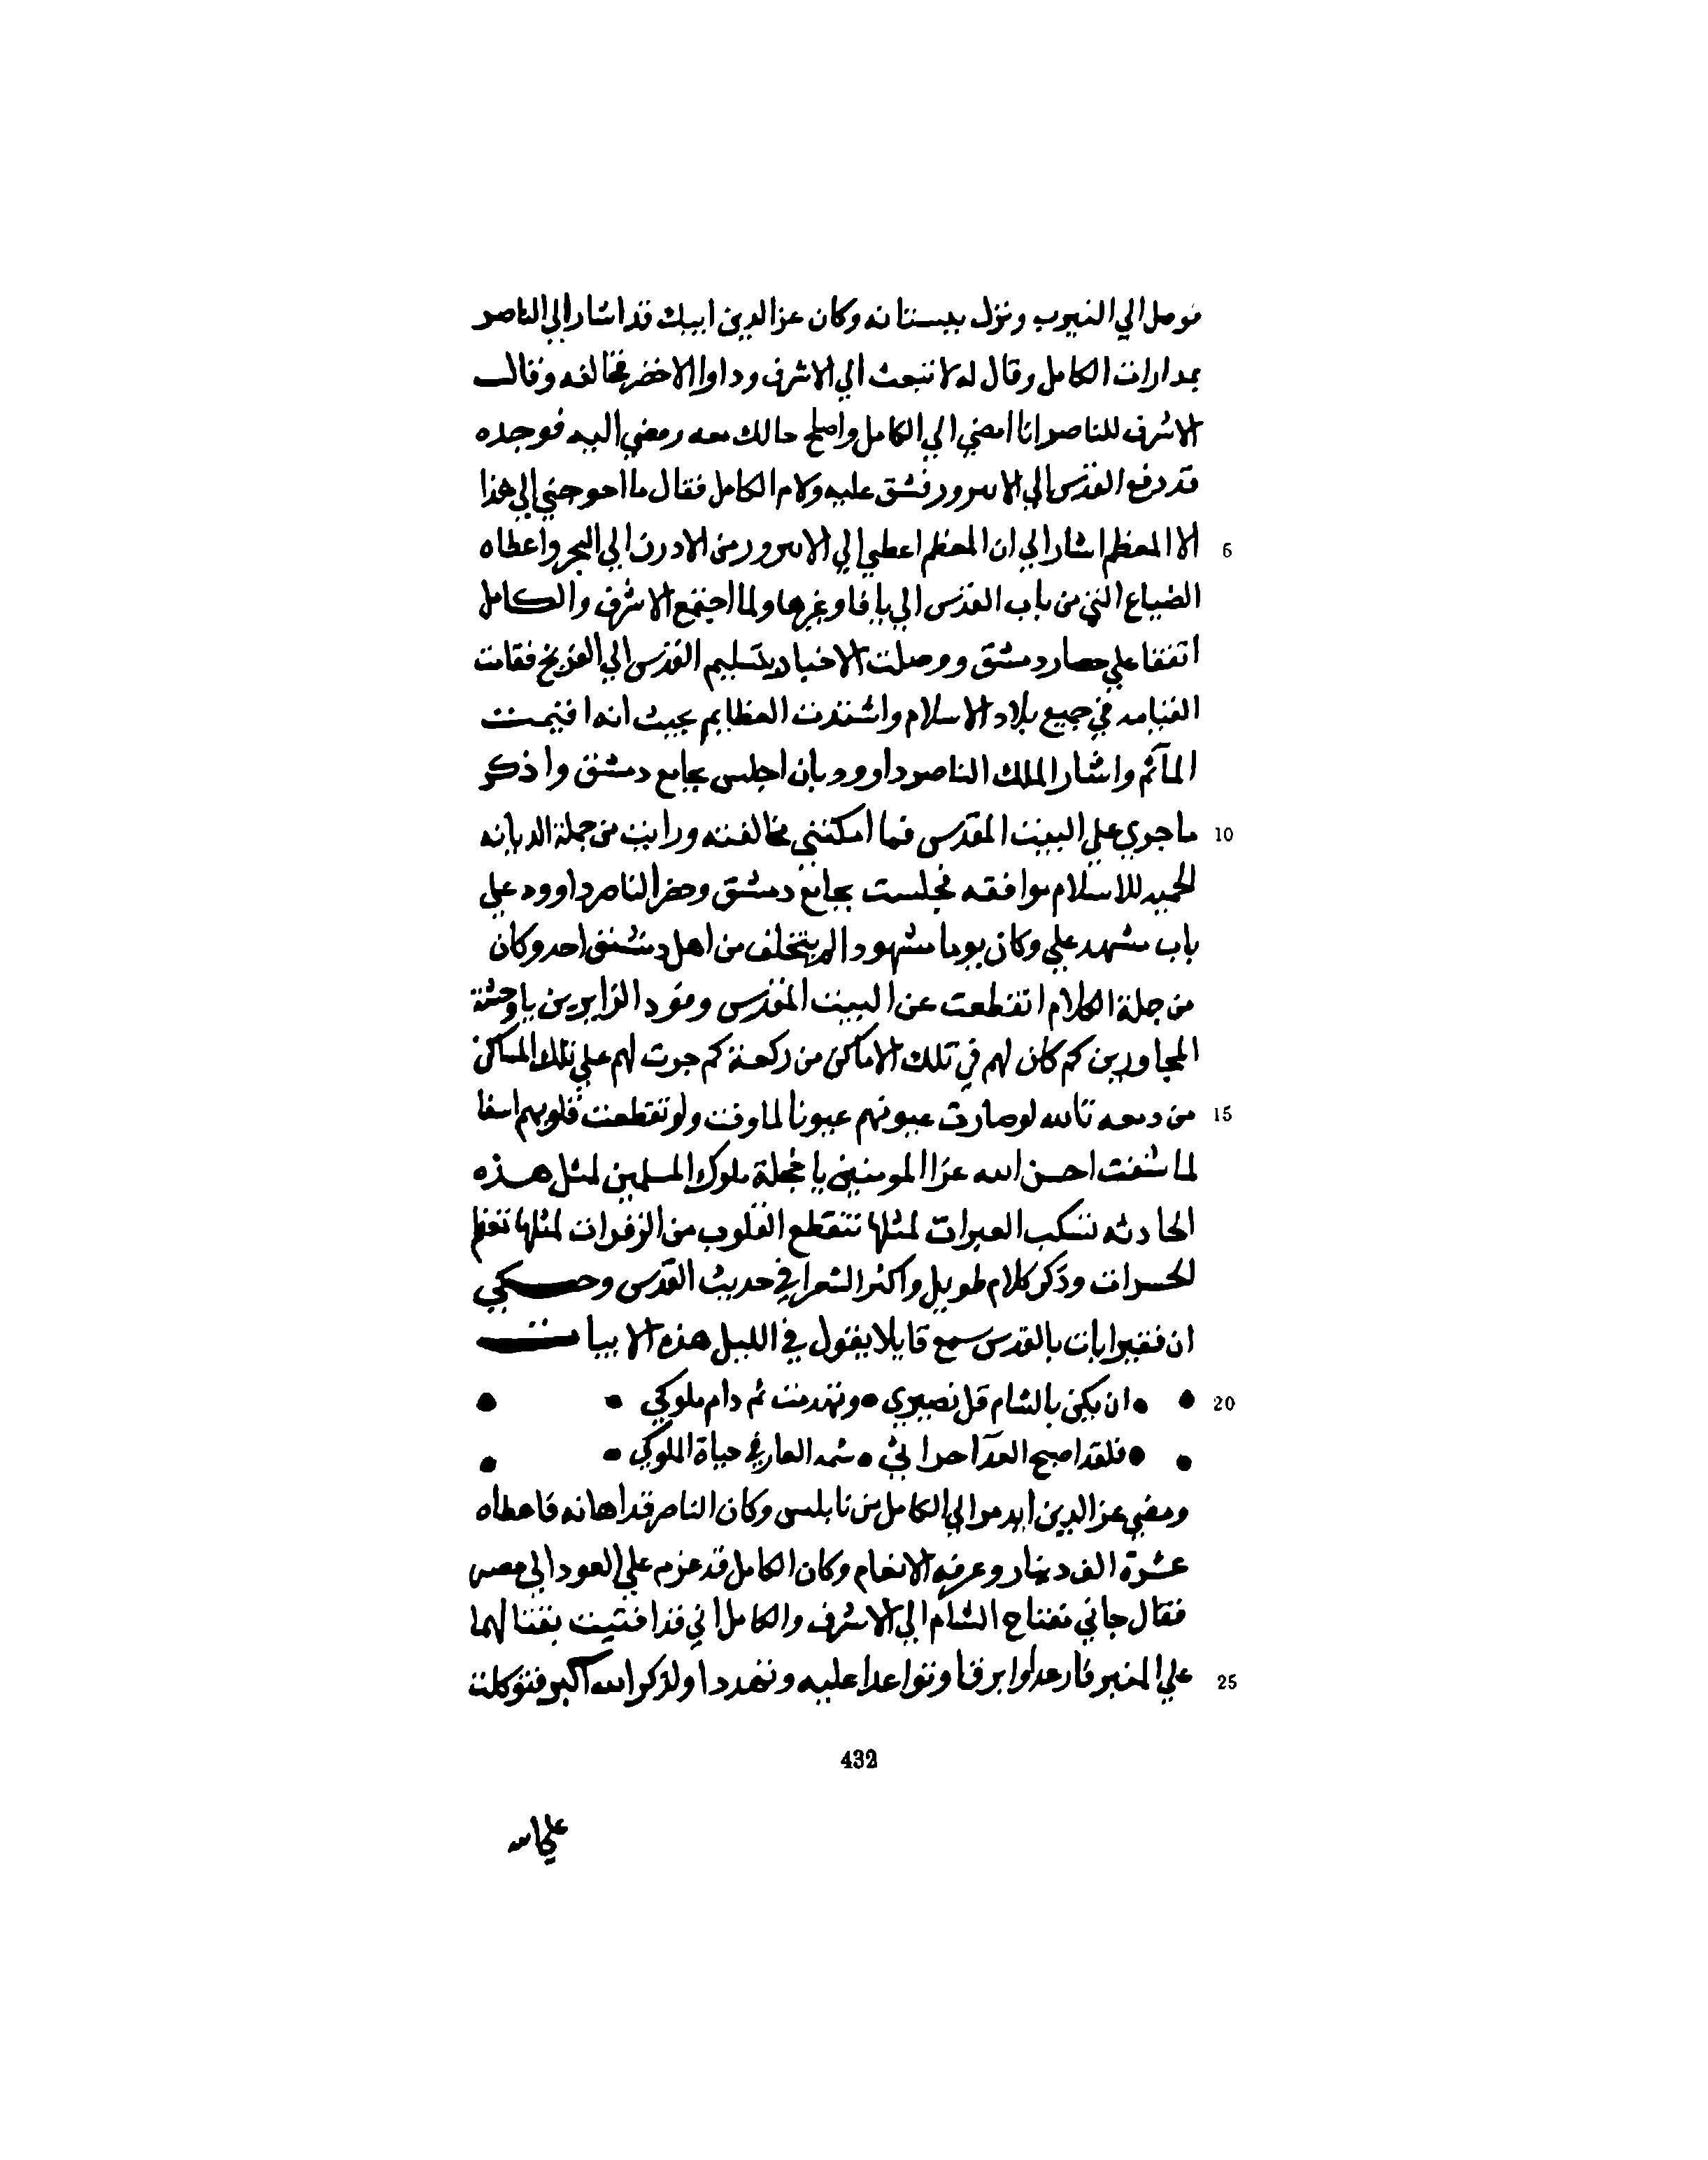 فوصل الي النيرب ونزل ببستانه وكان عز الدين ايبك قد اشار الي الناصر
بمدارات الكامل وقال له لا تبعث الي الاشرف وداوا الاخضر فخالفه وقال
الاشرف للناصر انا امضي الي الكامل واصلح حالك معه ومضي اليه فوجده
قد دفع القدس الي الانبرور فشق عليه ولام الكامل فقال ما احوجني الي هذا
5 الا المعظم اشار الي ان المعظم اعطي الي الانبرور من الاردن الي البحر واعطاه
الضياع التي من باب القدس الي يافا وغيرها ولما اجتمع الاشرف والكامل
اتفقا علي حصار دمشق ووصلت الاخبار بتسليم القدس الي الفرنج فقامت
القيامه في جميع بلاد الاسلام واشتدت العظايم بحيث انه اقيمت
المآثم واشار الملك الناصر داوود بان اجلس بجامع دمشق واذكر
10 ما جري علي البيت المقدس فما امكنني مخالفته ورايت من جملة الديانه
الحميه للاسلام موافقه فجلست بجامع دمشق وحضر الناصر داوود علي
باب مشهد علي وكان يوما مشهودا لم يتخلف من اهل دمشق احد وكان
من جملة الكلام انقطعت عن البيت المقدس وفود الزايرين يا وحشة
المجاورين كم كان لهم في تلك الاماكن من ركعة كم جرت لهم علي تلك المساكن
15 من دمعه تالله لو صارت عيونهم عيونا لما وفت ولو تقطعت قلوبهم اسفا
لما شفت احسن الله عزا المومنين يا خجلة ملوك المسلمين لمثل هذه
الحادثه تسكب العبرات لمثلها تتقطع القلوب من الزفرات لمثلها تعظم
الحسرات وذكر كلام طويل واكثر الشعرا في حديث القدس وحكي
ان فقيرا بات بالقدس سمع قايلا يقول في الليل هذه الابيات
20 ان يكن بالشام قل نصيري • وتهدمت ثم دام ملوكي
فلقد اصبح الغداة خرابي • سمه العار في حياة الملوكي
ومضي عز الدين ايدمر الي الكامل من نابلس وكان الناصر قد اهانه فاعطاه
عشرة الف دينار وعرفه الانعام وكان الكامل قد عزم علي العود الي مصر
فقال جاني مفتاح الشام الي الاشرف والكامل اني قد افتيت بقتالهما
25 علي المنبر فارعدا وابرقا وتواعدا عليه وتهددا ولذكر الله اكبر فتوكلت
432
علي الله